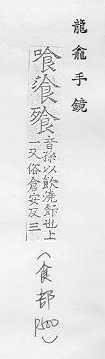 龍龕手鏡
喰飡飱音孫以飲澆飰也上
一又俗倉安反三
(食部 P500)